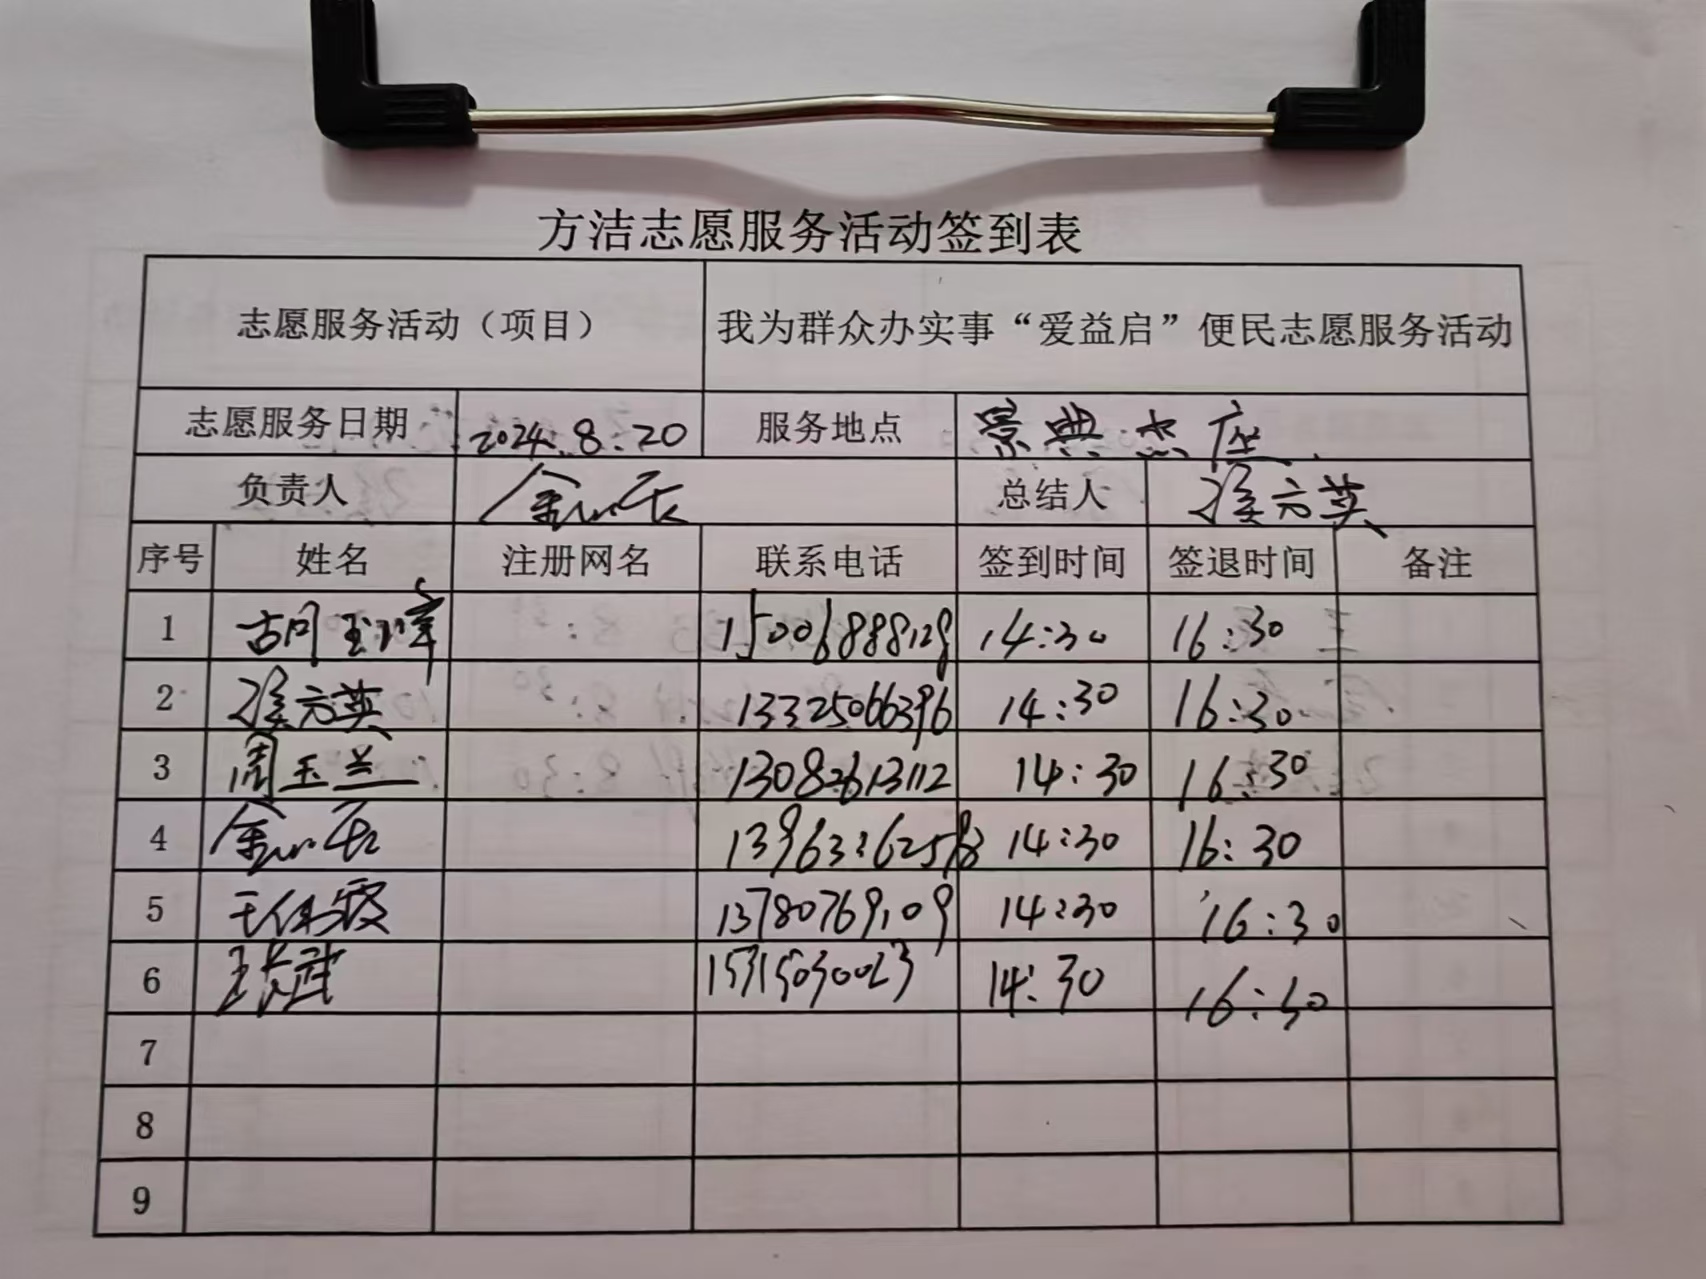 方洁志愿服务活动签到表
志愿服务活动（项目） 我为群众办实事“爱益启”便民志愿服务活动
志愿服务日期 2024.8.20 服务地点 景典杰座
负责人 总结人 侯方英
序号 姓名 注册网名 联系电话 签到时间 签退时间 备注
1 15006888129 14:30 16:30
2 侯方英 13325066396 14:30 16:30
3 周玉兰 13082613112 14:30 16:30
4 14:30 16:30
5 13780769109 14:30 16:30
6 15315030023 14:30 16:30
7
8
9